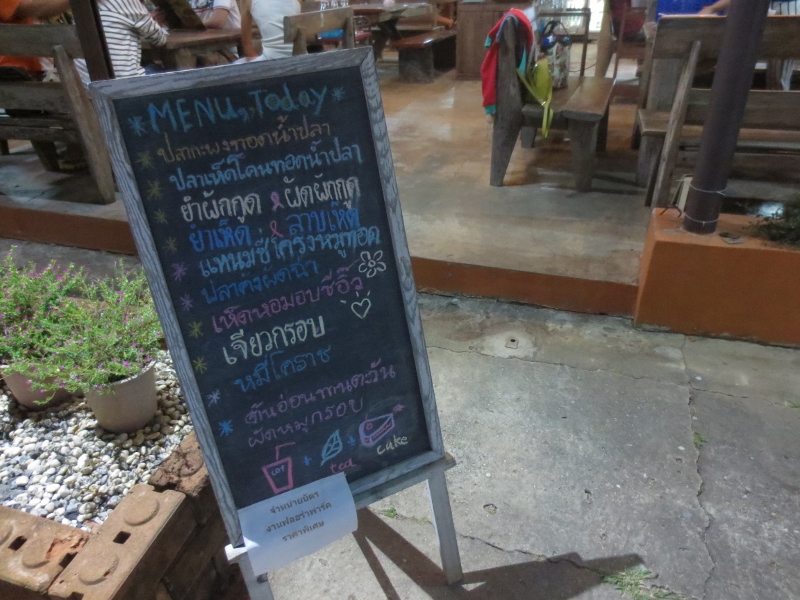 MENU, Today
ปลากะพงทอดน้ำปลา
ปลาเห็ดโคนทอดน้ำปลา
ยำผักกูด & ผัดผักกูด
ยำเห็ด & ลาบเห็ด
แหนมซี่โครงหมูทอด
ปลาคังผัดฉ่า
เห็ดหอมอบซีอิ๊ว
เจียวกรอบ
หมี่โคราช
ต้นอ่อนทานตะวัน
ผัดหมูกรอบ
tea cake
จำหน่ายบัตร
งานฟลอร่าพาร์ค
ราคาพิเศษ